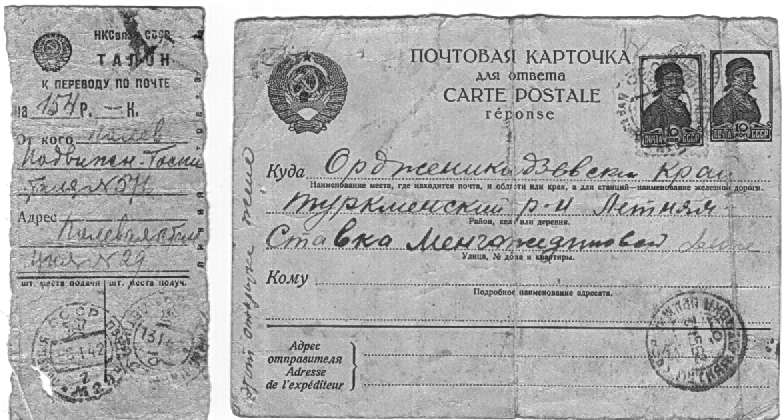 НКСвязи СССР
ТАЛОН
К ПЕРЕВОДУ ПО ПОЧТЕ
на 154 Р. — К.
От кого
Подвижн. Госпи
таля № 571
Адрес
Полевая ста
ция № 29
шт. места подачи шт. места получ.
ПОЧТОВАЯ КАРТОЧКА
для ответа
CARTE POSTALE
réponse
ПОЧТА 10 СССР
ПОЧТА 10 СССР
Куда Орджоникидзевски край
Наименование места, где находится почта, и области или края, а для станций—наименование железной дороги.
Туркменский р-н Летняя
Район, село или деревня.
Ставка Менгожидиновой
Улица, № дома и квартиры.
Кому
Подробное наименование адресата.
Адрес
отправителя
Adresse
de l'expéditeur